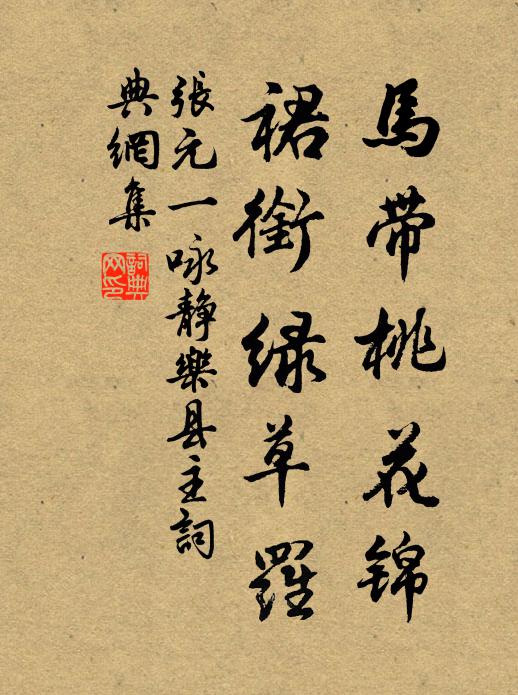 馬帶桃花錦
裙銜绿草羅
張元一咏静樂县主詞
典網集
詞典
网印